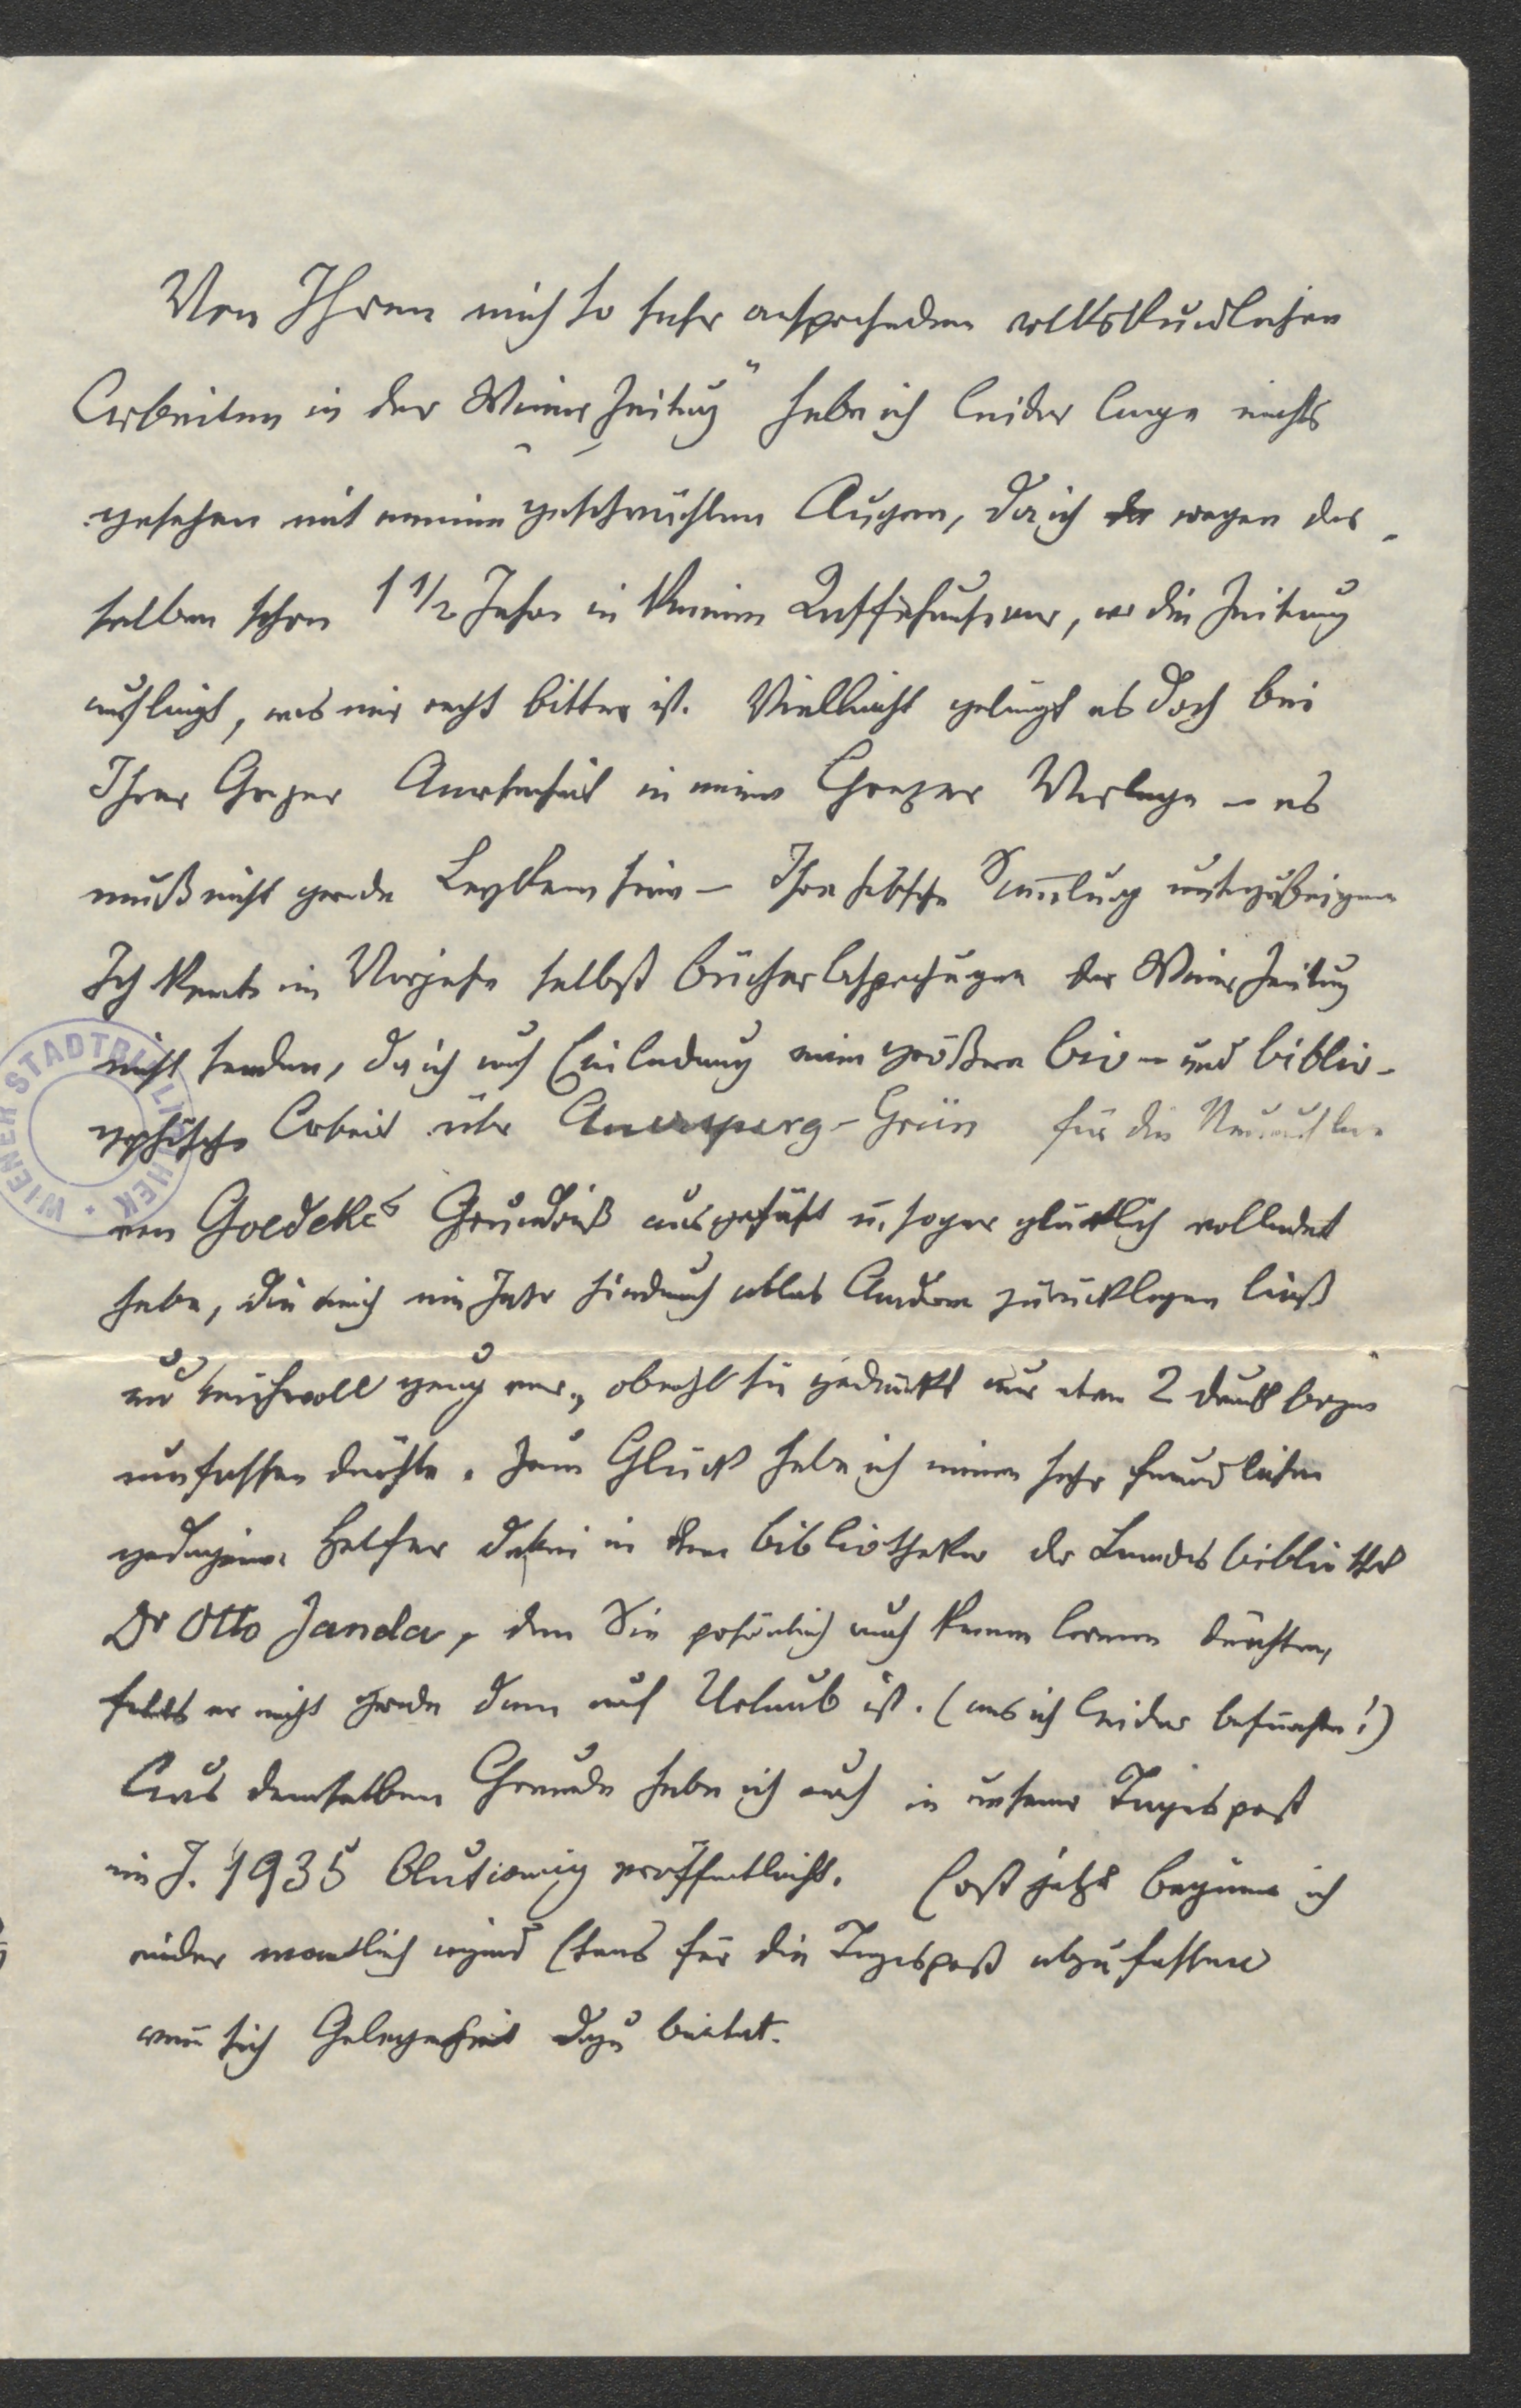 Von Ihren mich so sehr ansprechenden volkskundlichen
Arbeiten in der Wiener Zeitung" habe ich leider lange nichts
gesehen mit meinen geschwächten Augen, da ich wegen der
selben schon 1 1/2 Jahre in keinem Kaffeehause war, wo die Zeitung
aufliegt, was mir recht bitter ist. Vielleicht gelingt es doch bei
Ihrer Grazer Anwesenheit in einem Grazer Verlage – es
muß nicht gerade Leykam sein – Ihre hübsche Sammlung unterzubringen
Ich konnte im Vorjahre selbst Bücherbesprechungen der Wiener Zeitung
nicht senden, da ich auf Einladung eine größere bio- und biblio-
graphische Arbeit über Auersperg-Grün für die Neuauflage
von Goedekes Grundriß ausgeführt u. sogar glücklich vollendet
habe, die mich ein Jahr hindurch alles Andere zurücklegen ließ
und mühevoll genug war, obwohl sie gedruckt nur etwa 2 Druckbogen
umfassen dürfte. Zum Glück habe ich einen sehr freundlichen
gediegenen Helfer dabei in dem Bibliothekar der Landesbibliothek
Dr Otto Janda, den Sie persönlich auch kennen lernen dürften,
falls er nicht gerade dann auf Urlaub ist. (was ich leider befürchte!)
Aus demselben Grunde habe ich auch in unserer Tagespost
im J. 1935 blutwenig veröffentlicht. Erst jetzt beginne ich
wieder monatlich irgend Etwas für die Tagespost abzufassen
wenn sich Gelegenheit dazu bietet.
WIENER STADTBIBLIOTHEK